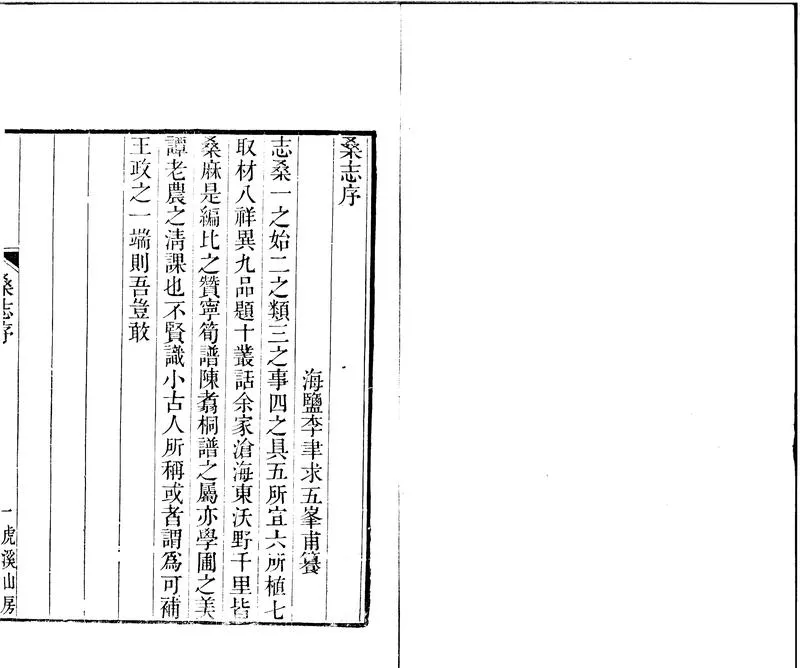 桑志序
海鹽李聿求五峯甫纂
志桑一之始二之類三之事四之具五所宜六所植七
取材八祥異九品題十叢話余家滄海東沃野千里皆
桑麻是編比之贊寧筍譜陳翥桐譜之屬亦學圃之美
譚老農之清課也不賢識小古人所稱或者謂爲可補
王政之一端則吾豈敢
桑志序
一
虎溪山房